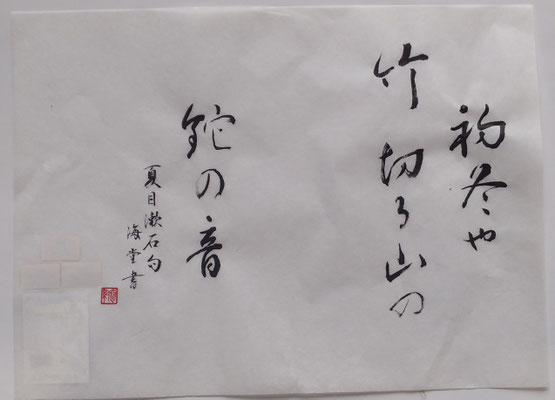 初冬や
竹切る山の
鉈の音
夏目漱石句
海堂書